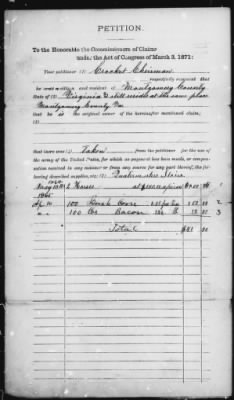 PETITION.
To the Honorable the Commissioners of Claims
under the Act of Congress of March 3, 1871:
Your petitioner (1) Crocket Chrisman
respectfully represents that
he is a citizen and resident of Montgomery County
State of Virginia & still resides at the same place
Montgomery County Va
that he is the original owner of the hereinafter mentioned claim;
(2)
that there were (3) Taken from the petitioner for the use of
the army of the United States, for which no payment has been made, or compen-
sation received by any manner or means from any source for any part thereof, the fol-
lowing described supplies, etc.: (4) Quartermaster Stores
1864
May 10 2 Horses
1865
Ap 10 100 Bush Corn
" " 100 lbs Bacon 12 00 3
Total